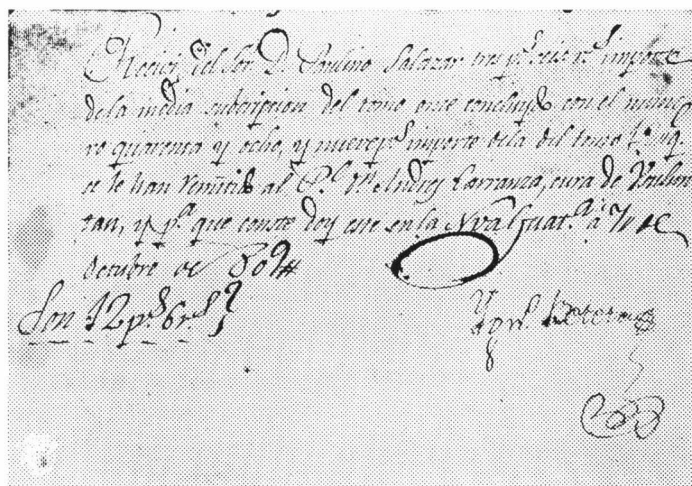 Recivi del Sor. D. Paulino Salazar tres ps. seis rs. importe
de la media subcripcion del tomo once concluydo con el nume
ro quarenta y ocho, y nueve ps. importe de la del tomo
se le han remitido al Pe. Dn. Andres Carranza, cura de
tan, y pa. que conste doy este en la Nva. Guata. à 7 de
Octubre de 807
Son 12 ps. 6 rs.